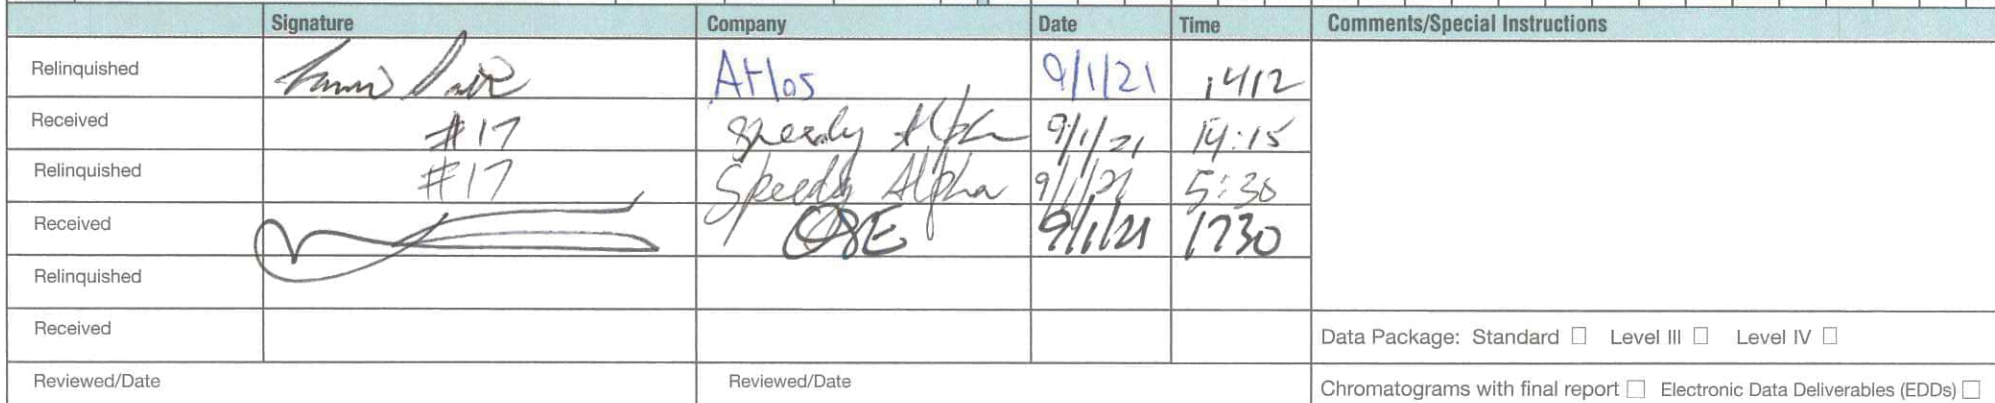 Signature Company Date Time Comments/Special Instructions
Relinquished Atlas 9/1/21 1412
Received #17 Speedy Alpha 9/1/21 14:15
Relinquished #17 Speedy Alpha 9/1/21 5:30
Received OBE 9/1/21 1730
Relinquished
Received Data Package: Standard ☐ Level III ☐ Level IV ☐
Reviewed/Date Reviewed/Date Chromatograms with final report ☐ Electronic Data Deliverables (EDDs) ☐